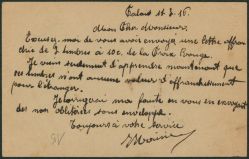 Calais 11-3-16.
Mon Cher Monsieur.
Excusez-moi de vous avoir envoyé une lettre affran-
chie de 2 timbres à 10c. de la Croix Rouge.
Je viens seulement d'apprendre maintenant que
ces timbres n'ont aucune valeur d'affranchissement
pour l'étranger.
ma faute en vous en envoyant
des non oblitérés sous enveloppe.
Toujours à votre service